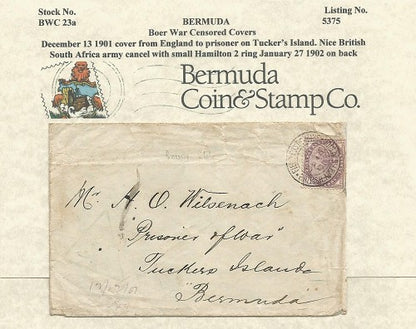 Stock No. BERMUDA Listing No.
BWC 23a Boer War Censored Covers 5375
December 13 1901 cover from England to prisoner on Tucker's Island. Nice British
South Africa army cancel with small Hamilton 2 ring January 27 1902 on back
Bermuda
Coin & Stamp Co.
Mr H. O. Wilsenach
"Prisoner of War"
Tuckers Island
"Bermuda"